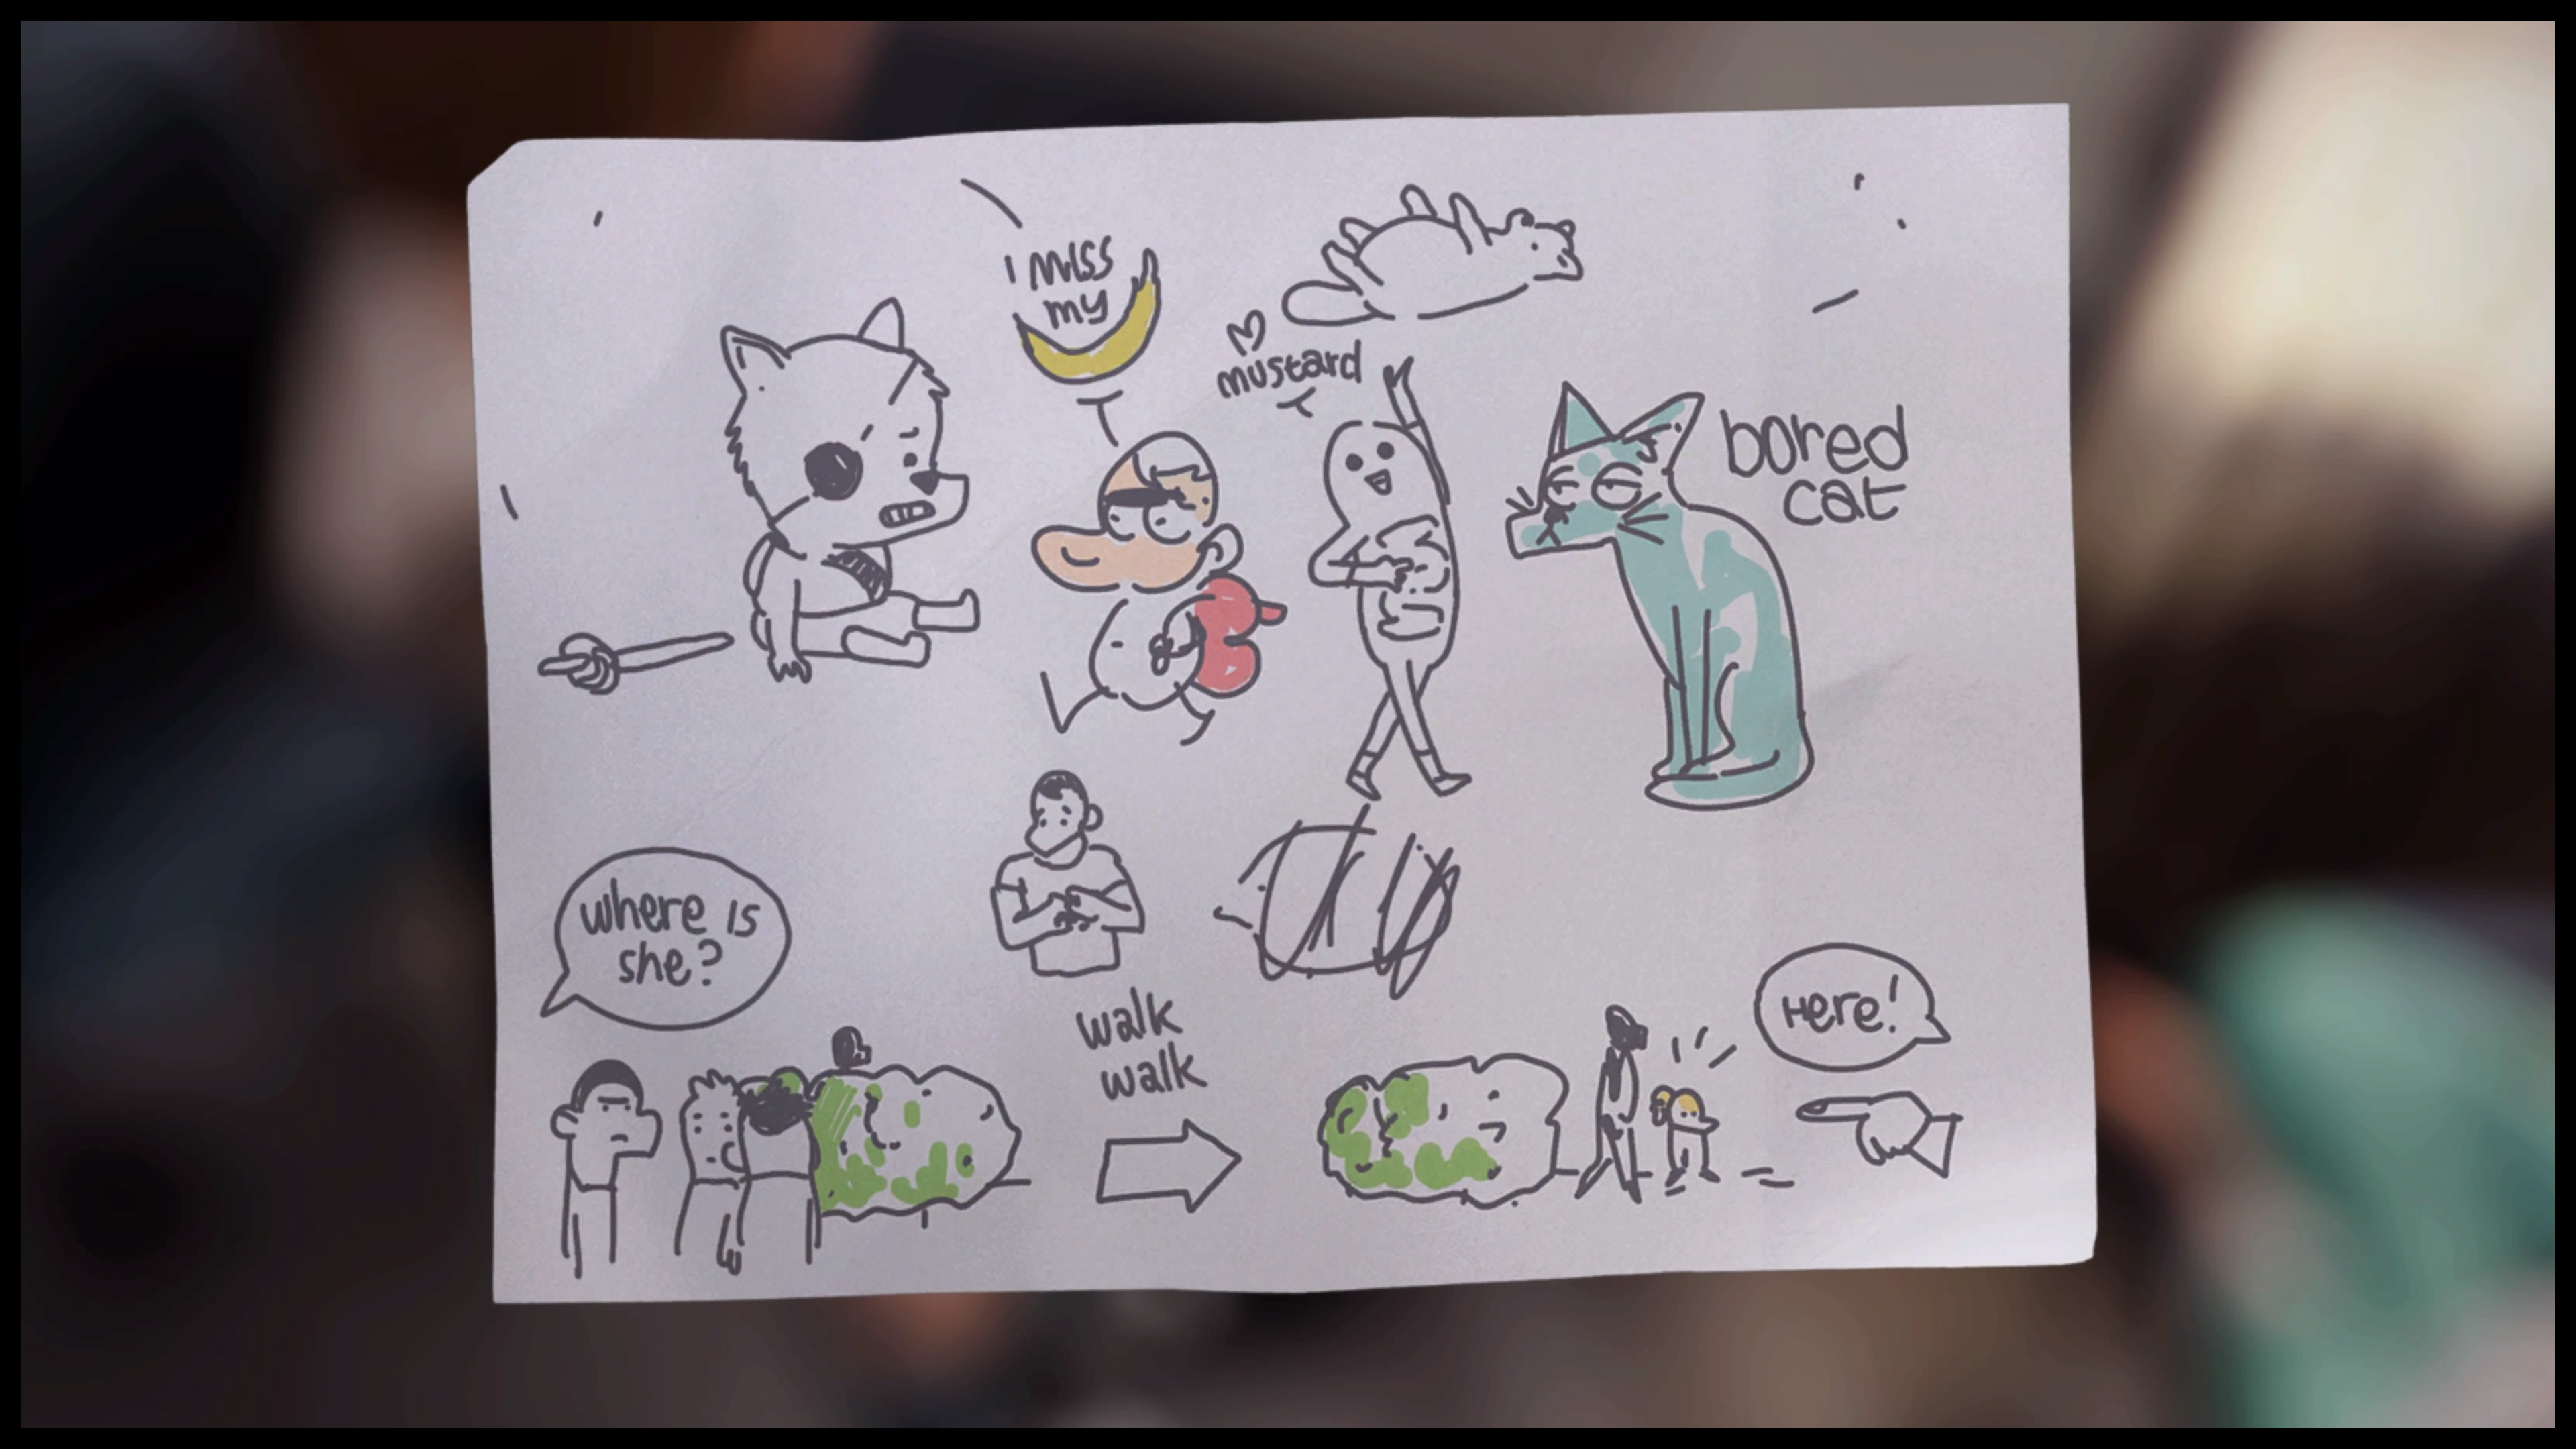 I MISS
my
mustard
bored
cat
where is
she?
walk
walk
Here!